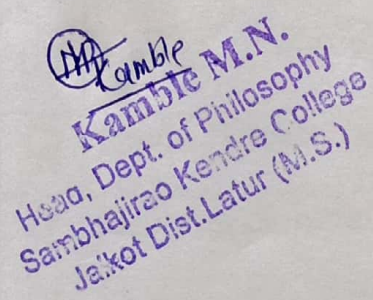 Kamble
Kamble M.N.
Head, Dept. of Philosophy
Sambhajirao Kendre College
Jalkot Dist.Latur (M.S.)